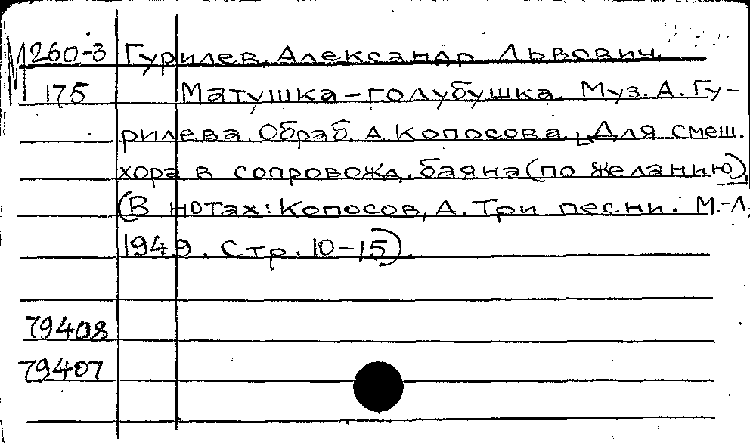 М260-3 Гурилев, Александр Львович.
175 Матушка-голубушка. Муз. А. Гу-
рилева. Обраб. А. Копосова. Для смеш.
хора в сопровожд. баяна (по желанию).
(В нотах: Копосов, А. Три песни. М.-Л,
1949. Стр. 10-15).
79408
79407